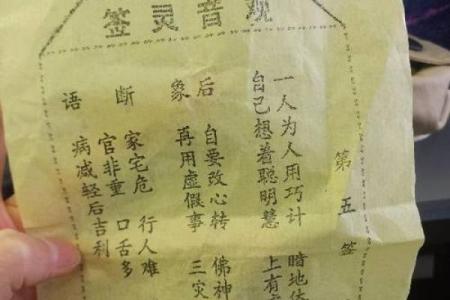 观音灵签
第五签
一人为人用巧计 暗地
自己想着聪明慧 上有
后象
自要改心转 佛神
再用虚假事 三灾
断语
家宅危 行人难
官非重 口舌多
病减轻后吉利